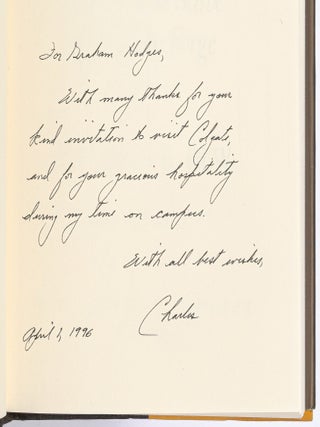 For Graham Hodges,
With many thanks for your
kind invitation to visit Colgate,
and for your gracious hospitality
during my time on campus.
With all best wishes,
Charles
April 1, 1996